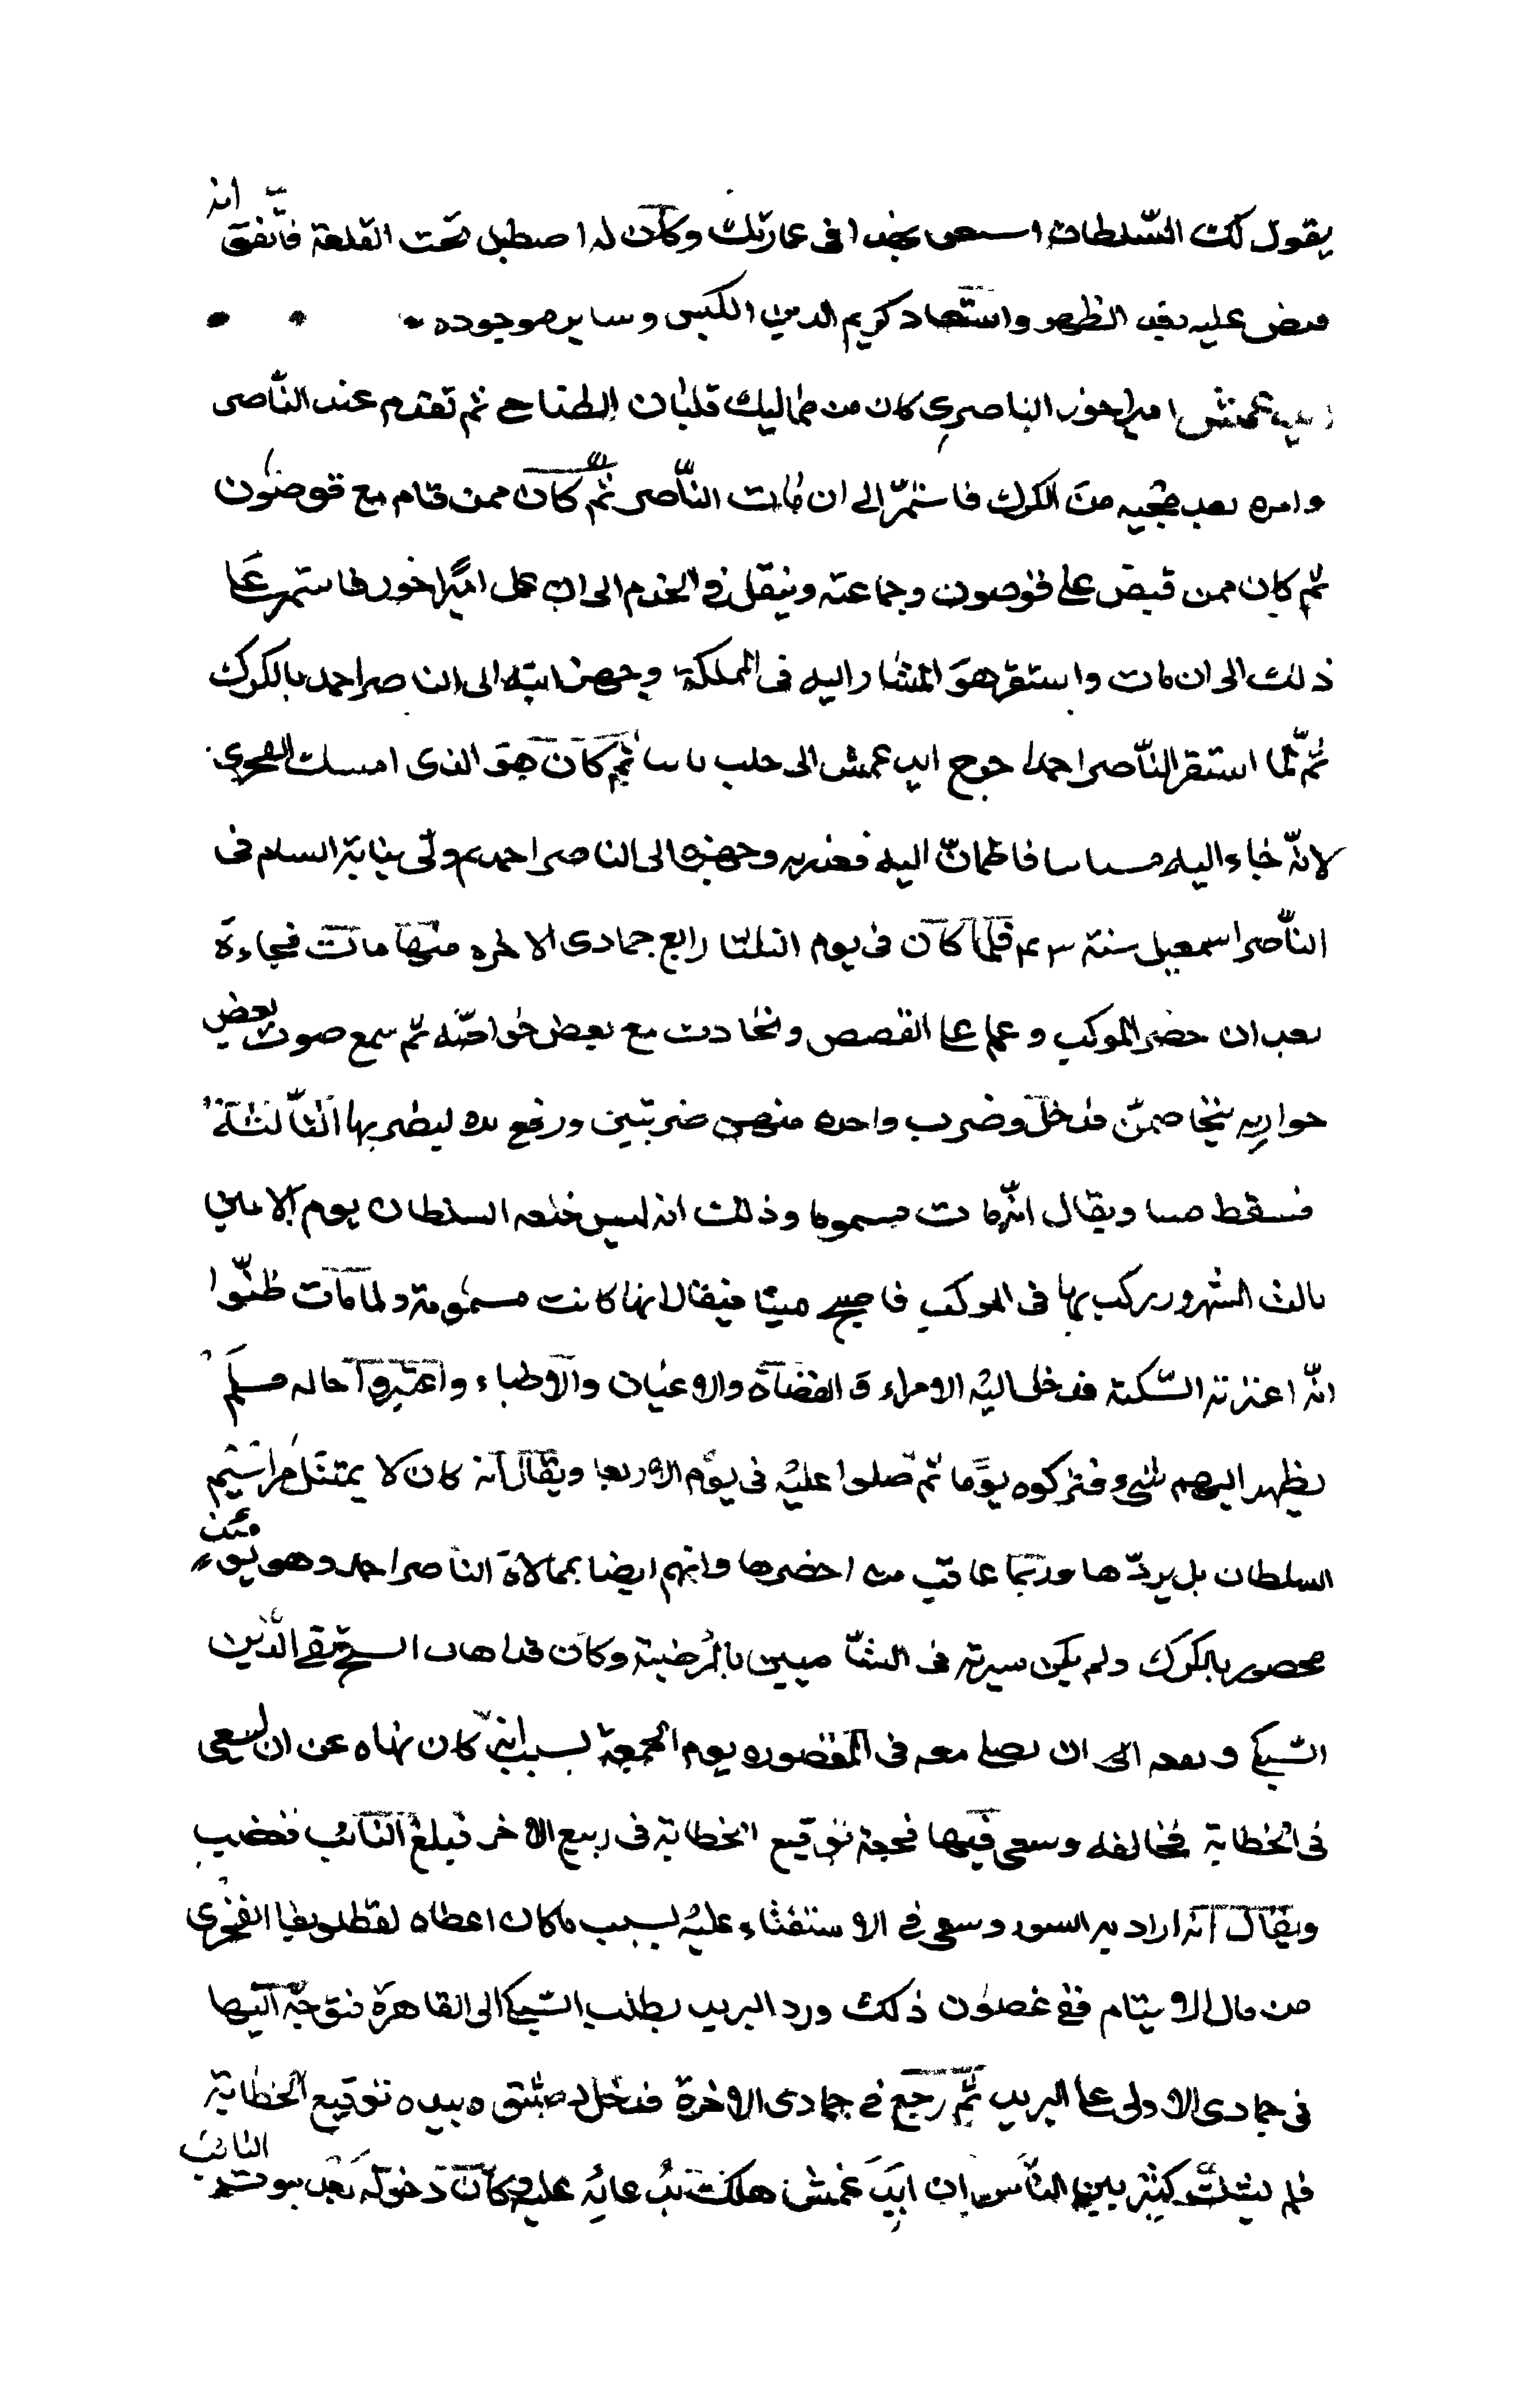 يقول لك السلطان استعن بهذا في عمارتك وكان له اصطبل تحت القلعة فاتفق انه
قبض عليه بعد الظهر واستعاد كريم الدين الكيس وساير موجوده
ايدغمش اميراخور الناصري كان من مماليك قلبان الطباخي ثم تقدم عند الناصر
وامره بعد مجيه من الكرك فاستمر الى ان مات الناصر ثم كان ممن قام مع قوصون
ثم كان ممن قبض على قوصون وجماعته وينقل في الخدم الى ان عمل اميراخور فاستمر على
ذلك الى ان مات واستقر هو المشار اليه في المملكة وجهز ابنه الى الناصر احمد بالكرك
ثم لما استقر الناصر احمد اخرج ايدغمش الى حلب نائبا ثم كان هو الذي امسك الفخري
لانه جاء اليه فاطمان اليه فغدر به وجهزه الى الناصر احمد ثم ولي نيابة السلام في
الناصر اسمعيل سنة ٤٣ فلما كان في يوم الثلثا رابع جمادى الاخره منها مات فجاءة
بعد ان حضر الموكب وعلم على القصص وتحادث مع بعض خواصه ثم سمع صوت بعض
جواريه يتخاصمن فدخل وضرب واحده منهن ضربتين ورفع يده ليضربها الثالثة
فسقط ميتا ويقال انه مات مسموما وذلك انه لبس خلعه السلطان يوم الاثنين
ثالث الشهر وركب بها في الموكب فاصبح ميتا فيقال انها كانت مسمومة ولما مات ظنوا
انه اعترته السكتة فدخل اليه الامراء والقضاة والاعيان والاطباء واعتبروا حاله فلم
يظهر اليهم شيء فتركوه يوما ثم صلوا عليه في يوم الاربعا ويقال انه كان لا يمتثل مراسيم
السلطان بل يردها وربما عاقب من احضرها واتهم ايضا بممالاة الناصر احمد وهو يومئذ
محصور بالكرك ولم يكن سيرته في الشاميين بالمرضية وكان قد اهان الشيخ تقي الدين
السبكي ان يصلي معه في المقصورة يوم الجمعة بسبب انه كان نهاه عن ان يسعى
في الخطابة فخالفه وسعى فيها فجاءه توقيع الخطابة في ربيع الاخر فبلغ النائب فغضب
ويقال انه اراد به السوء وسعى في الاستفتاء عليه بسبب ما كان اعطاه لقطلوبغا الفخري
من مال الايتام ففي غضون ذلك ورد البريد بطلب السبكي الى القاهرة فتوجه اليها
في جمادى الاولى على البريد ثم رجع في جمادى الاخرة فدخل دمشق وبيده توقيع الخطابة
فلم كثير بين الناس ان ايدغمش هلك بدعائه عليه وكان دخوله بعد موت النائب